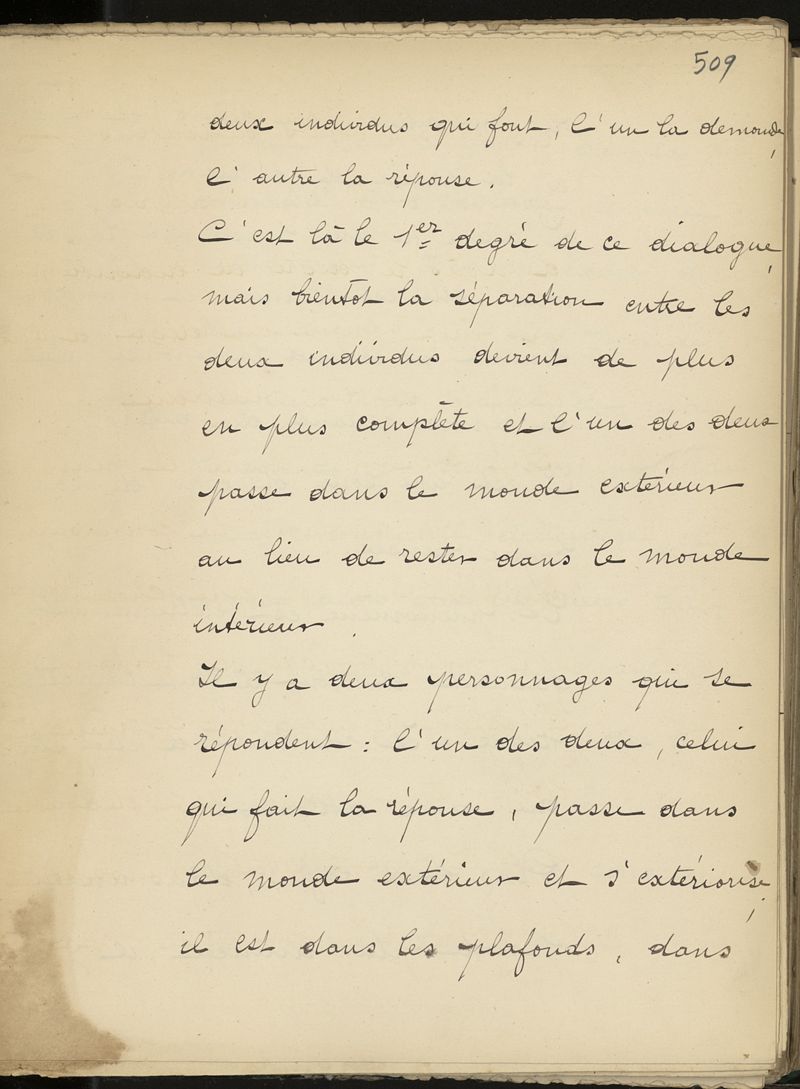 509
deux individus qui font, l'un la demande,
l'autre la réponse.
C'est là le 1er degré de ce dialogue,
mais bientôt la séparation entre les
deux individus devient de plus
en plus complète et l'un des deux
passe dans le monde extérieur
au lieu de rester dans le monde
intérieur.
Il y a deux personnages qui se
répondent : l'un des deux, celui
qui fait la réponse, passe dans
le monde extérieur et s'extériorise,
il est dans les plafonds, dans